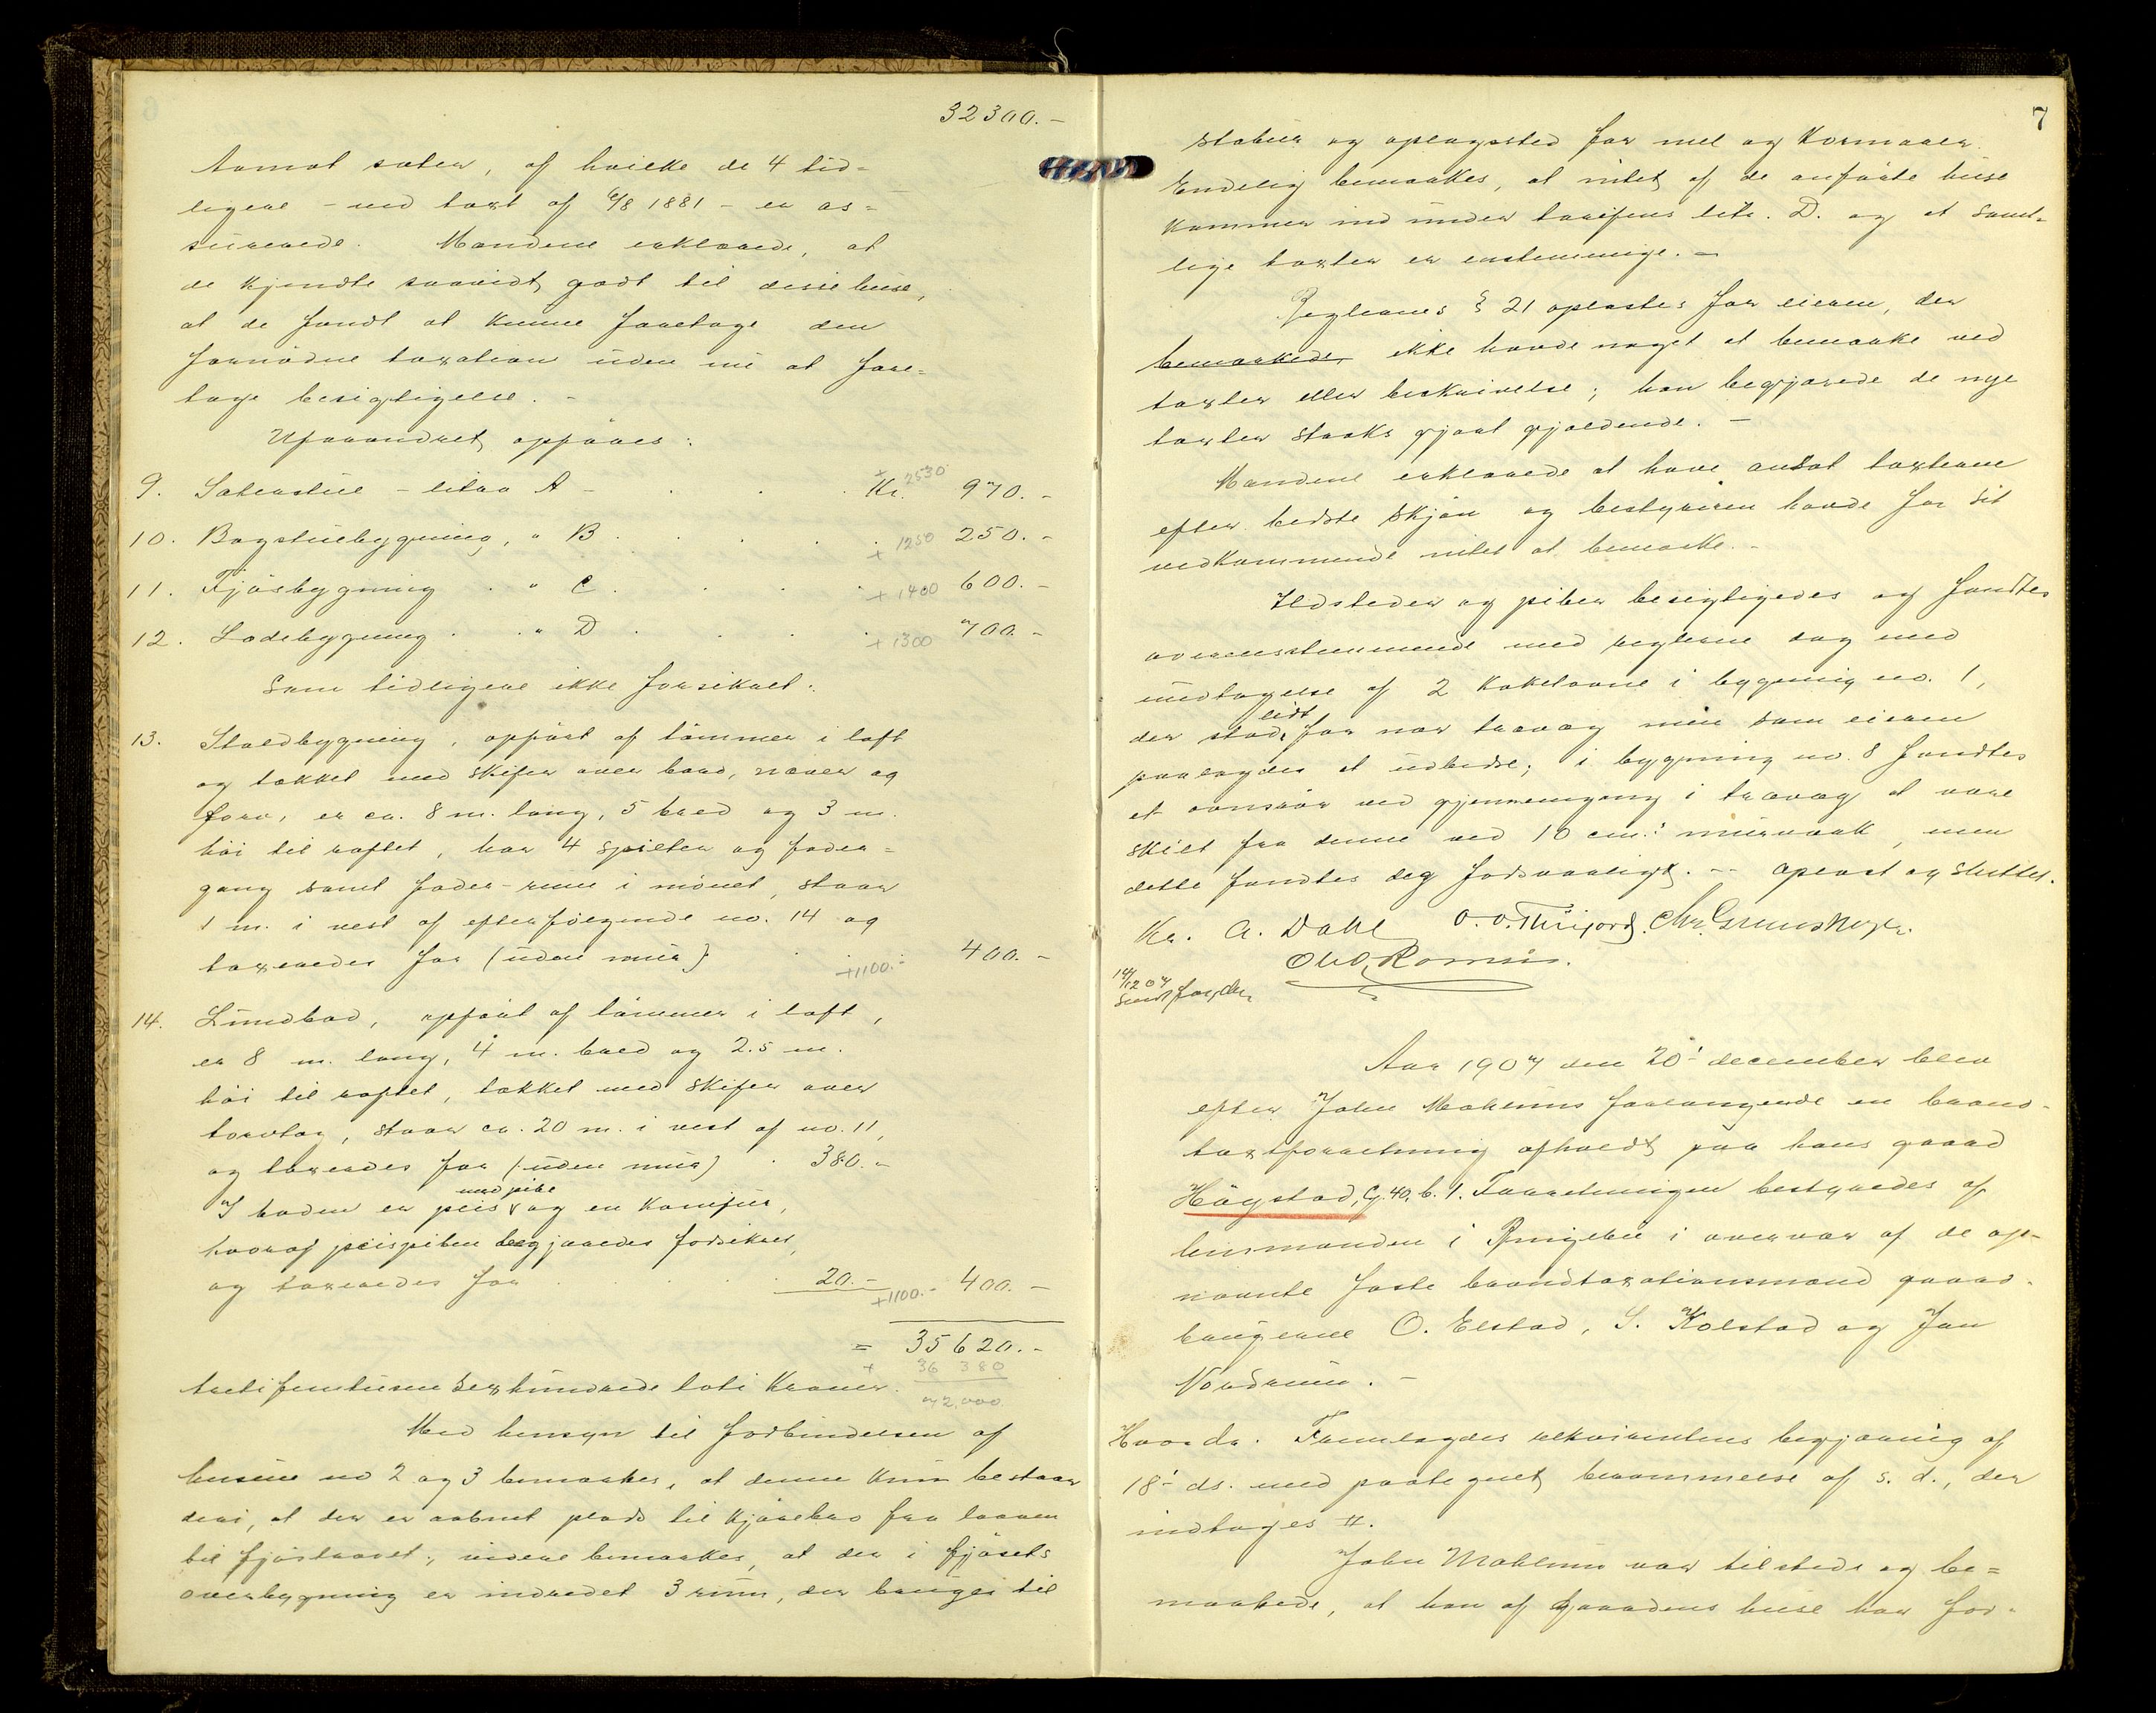 32300.-
Aamot sæter, af hvilke de 4 tid=
ligere - ved taxt af 6/8 1881 - er as=
surerede. Mændene erklærede, at
de kjendte saavidt godt til disse huse,
at de fandt at kunne foretage den
fornødne taxation uden nu at fore-
tage besigtigelse. -
Uforandret opføres:
9. Sæterstue - litra A - . . Kr. + 2530 970. -
10. Bagstuebygning, " B . . . . + 1250 250. -
11. Fjøsbygning . " C . . . + 1400 600. -
12. Ladebygning . . " D . . . + 1300 700. -
Som tidligere ikke forsikret:
13. Staldbygning, opført af tømmer i laft
og tækket med skifer over bord, næver og
torv, er ca. 8 m. lang, 5 bred og 3 m.
høi til raftet, har 4 spilter og foder=
gang samt foder-rum i mønet, staar
1 m. i vest af efterfølgende no. 14 og
taxeredes for (uden mur) . . +1100.- 400. -
14. Lundbod, opført af tømmer i laft,
er 8 m. lang, 4 m. bred og 2.5 m.
høi til raftet, tækket med skifer over
torvtag, staar ca. 20 m. i vest af no. 11,
og taxeredes for (uden mur) . 380.-
med pibe
I boden er peis og en komfur,
hvoraf peispiben begjæredes forsikret,
og taxeredes for . . . . 20.- +1100.- 400. -
= 35620.-
+ 36 380
tretifemtusen sexhundrede toti kroner.
72,000.
Med hensyn til forbindelsen af
husene no 2 og 3 bemærkes, at denne kun bestaar
deri, at der er aabnet plads til kjørebro fra laaven
til fjøstraevet; videre bemærkes, at der i fjøsets
overbygning er indredet 3 rum, der bruges til
7
stabur og oplagssted for mel og kornvarer.
Endelig bemærkes, at intet af de anførte huse
kommer ind under tarifens litr. D. og at samt-
lige taxter er enstemmige. -
Reglernes § 21 oplæstes for eieren, der
bemærkede, ikke havde noget at bemærke ved
taxter eller beskrivelse; han begjærede de nye
taxter straks gjort gjældende. -
Mændene erklærede at have ansat taxterne
efter bedste skjøn og bestyreren havde for sit
vedkommende intet at bemærke. -
Ildsteder og piber besigtigedes og fandtes
overensstemmende med reglerne dog med
undtagelse af 2 kakelovne i bygning no. 1,
lidt
der stod for nær trævæg men som eieren
paalagdes at udbedre; i bygning no. 8 fandtes
et ovnsrør ved gjennemgang i trævæg at være
skilt fra denne ved 10 cm.s murværk, men
dette fandtes dog forsvarligt. -- Oplæst og sluttet.
Kr. A. Dahl O. O. Thujord. Chr. Grimsheger.
Ole O. Romun.
14/12 07
Aar 1907 den 20' december blev
efter John Mæhlums forlangende en brand-
taxtforretning afholdt paa hans gaard
Høgstad, G. 40, b. 1. Forretningen bestyredes af
lensmanden i Ringebu i overvær af de op-
nævnte faste brandtaxationsmænd gaard-
brugerne O. Elstad, S. Kolstad og Jan
Nordrum. -
Hvorda. Fremlagdes rekvirentens begjæring af
18' ds. med paategnet berammelse af s. d., der
indtages #.
John Mæhlum var tilstede og be=
mærkede, at han af gaardens huse har for-